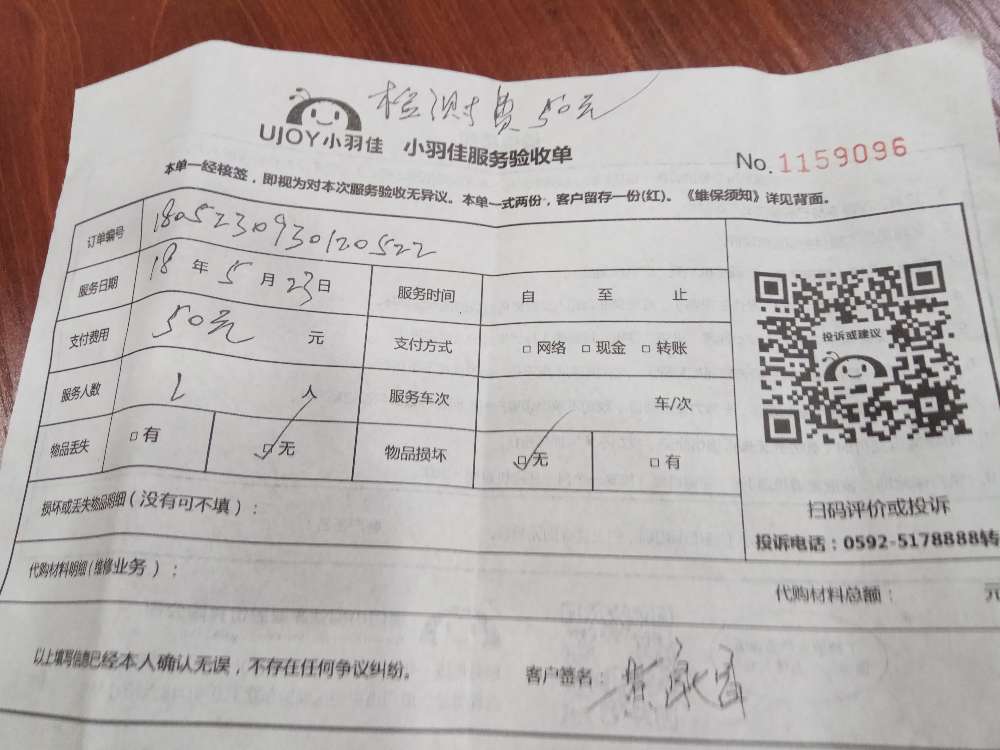 检测费50元
UJOY小羽佳 小羽佳服务验收单
No.1159096
本单一经核签，即视为对本次服务验收无异议。本单一式两份，客户留存一份(红)。《维保须知》详见背面。
订单编号 1805230930120522
服务日期 18年5月23日 服务时间 自 至 止
支付费用 50元 元 支付方式 □网络 □现金 □转账
投诉或建议
服务人数 1 人 服务车次 车/次
物品丢失 □有 ☑无 物品损坏 ☑无 □有
损坏或丢失物品明细(没有可不填)：
扫码评价或投诉
投诉电话：0592-5178888转
代购材料明细(维修业务)：
代购材料总额： 元
以上填写信息已经本人确认无误，不存在任何争议纠纷。 客户签名：